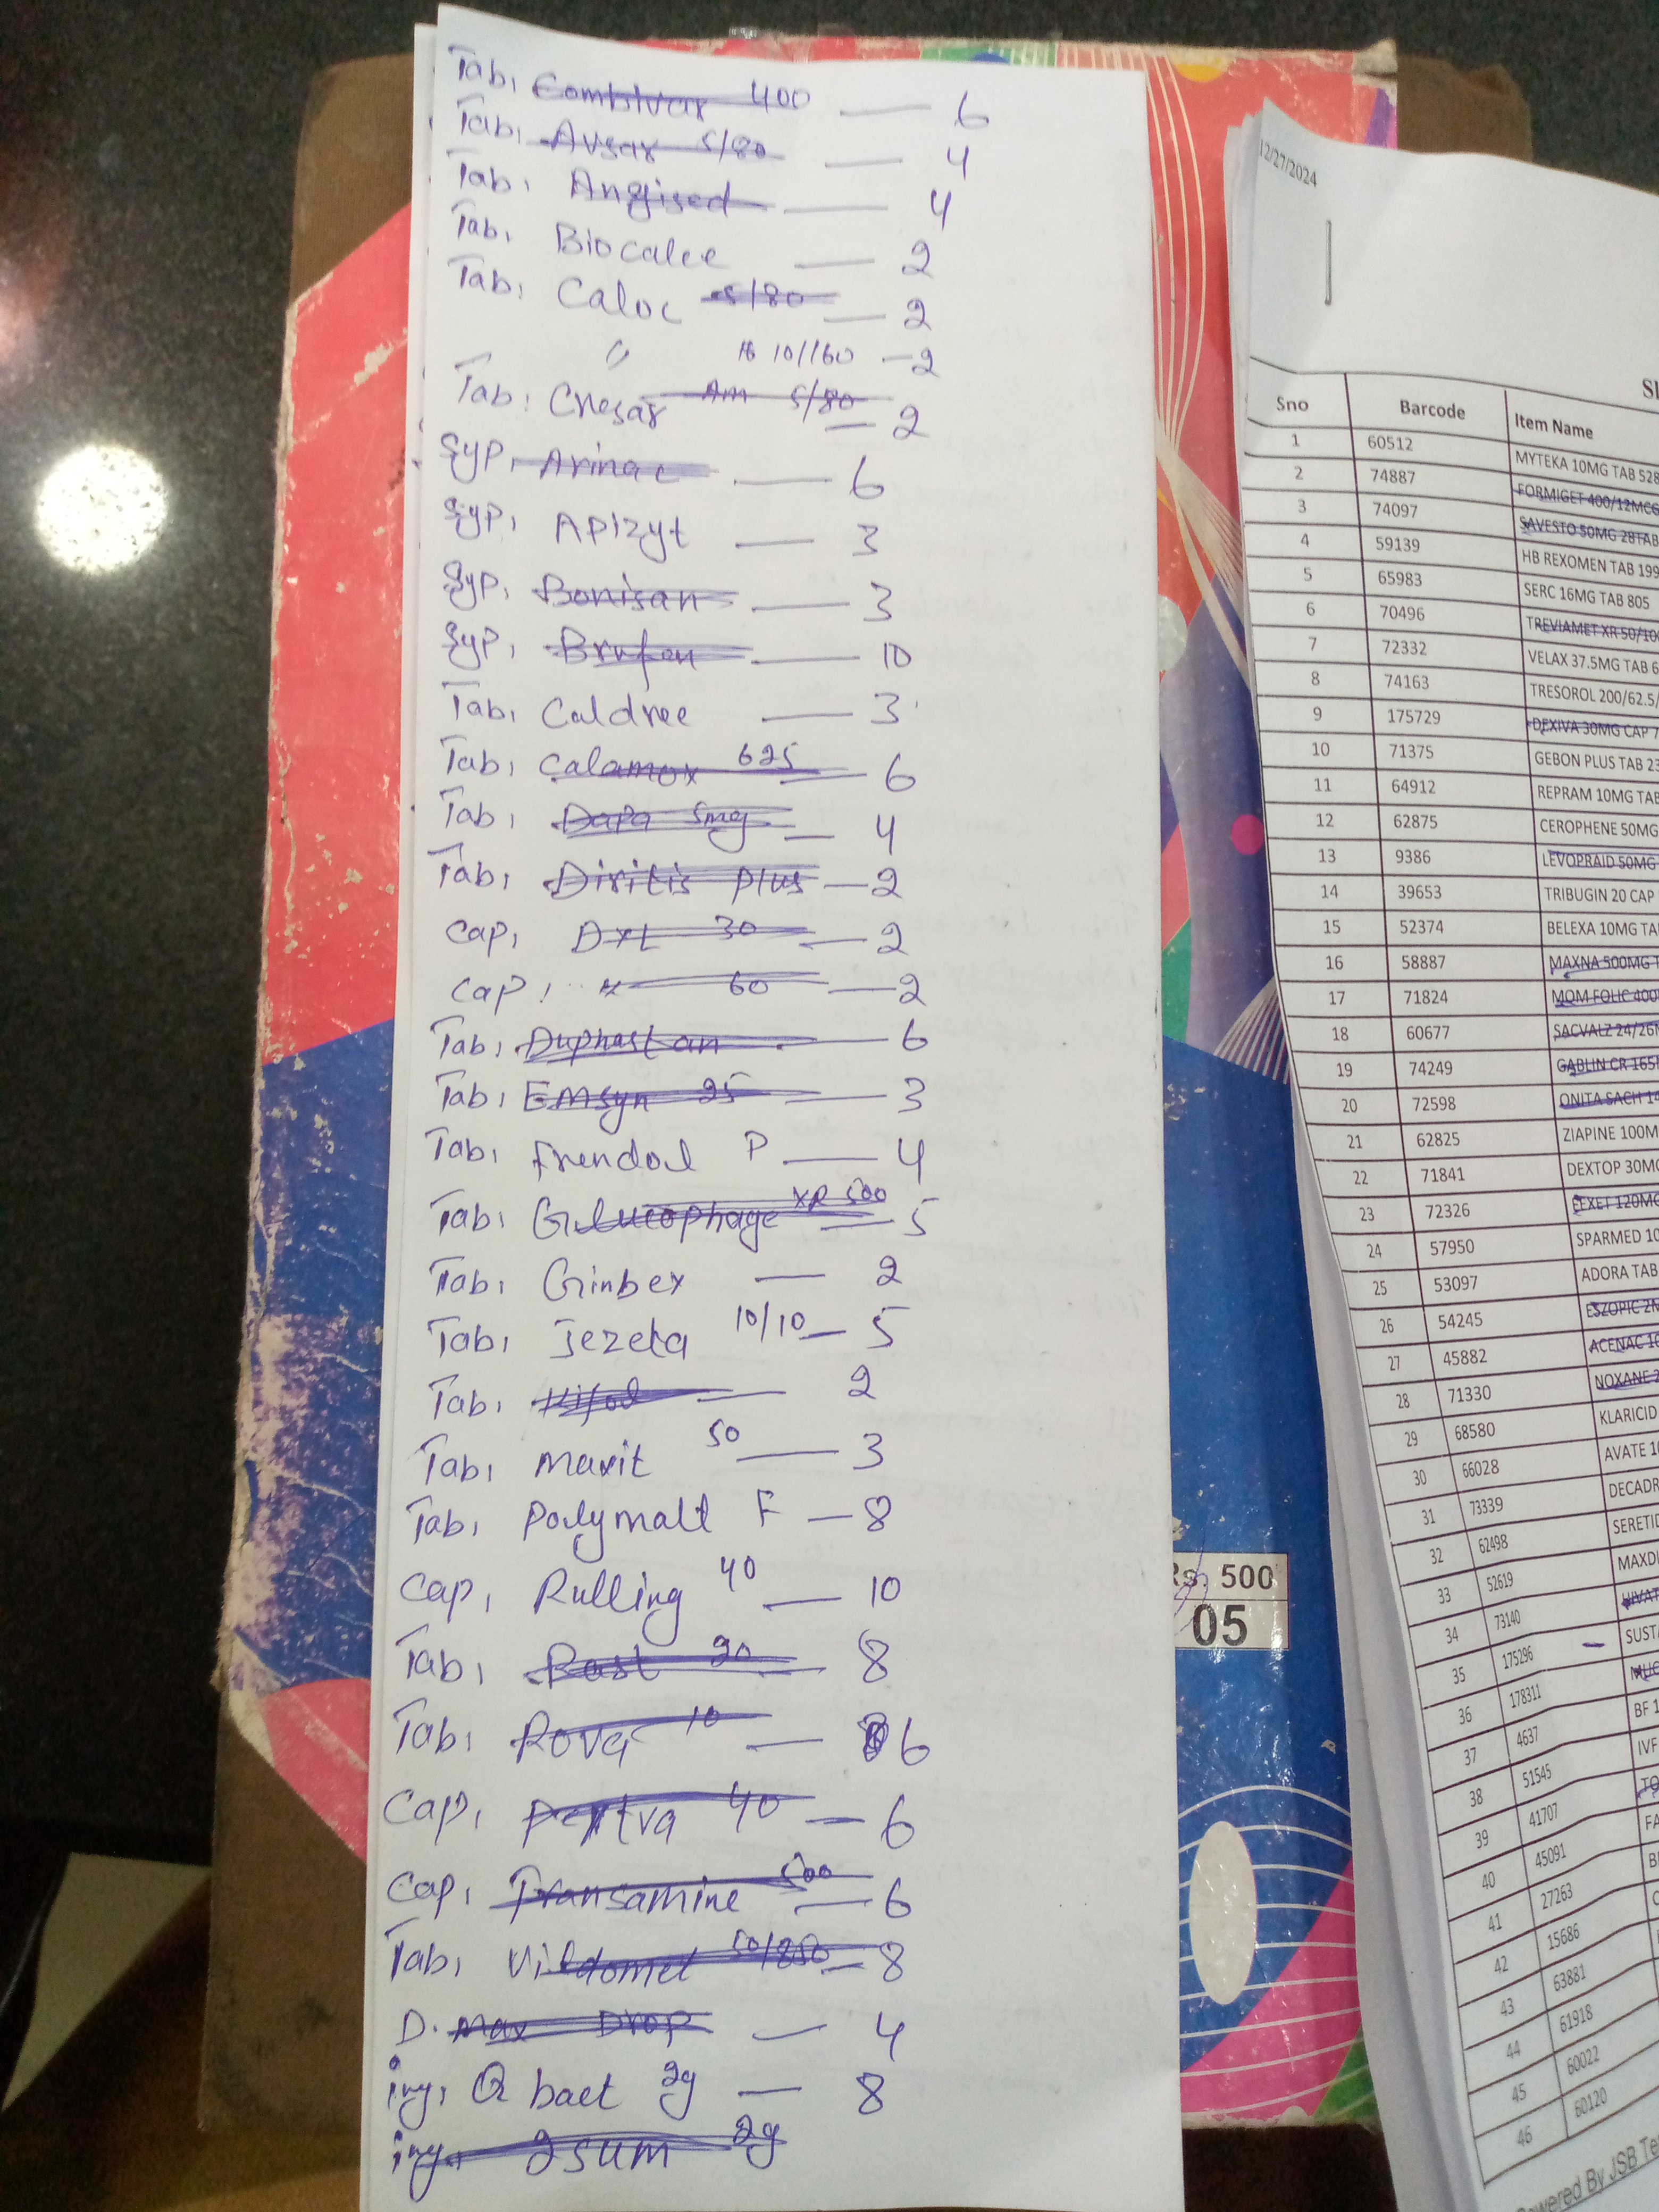 Tab, Combivar 400 — 6
Tab, Avsar 5/80 — 4
Tab, Angised — 4
Tab, Biocalee — 2
Tab, Caloc 5/80 — 2
" 10/160 — 2
Tab, Cresar Am 5/80 — 2
Syp, Arinac — 6
Syp, Apizyt — 3
Syp, Bonisan — 3
Syp, Brufen — 10
Tab, Caldree — 3
Tab, Calamox 625 — 6
Tab, Dapa 5mg — 4
Tab, Diritis plus — 2
Cap, DXL 30 — 2
Cap, " 60 — 2
Tab, Duphastan — 6
Tab, Emsyn 25 — 3
Tab, Frendol P — 4
Tab, Glucophage XR 500 — 5
Tab, Ginbex — 2
Tab, Jezeta 10/10 — 5
Tab, — 2
Tab, Maxit 50 — 3
Tab, Polymalt F — 8
Cap, Rulling 40 — 10
Tab, Rast 20 — 8
Tab, Rova 10 — 6
Cap, 40 — 6
Cap, Transamine 500 — 6
Tab, Vildomet 50/850 — 8
D. Max Drop — 4
inj, Q bact 2g — 8
inj, 2sum 2g
12/27/2024
Sno Barcode Item Name
1 60512 MYTEKA 10MG TAB 528
2 74887 FORMIGET 400/12MCG
3 74097 SAVESTO 50MG 28TAB
4 59139 HB REXOMEN TAB 199
5 65983 SERC 16MG TAB 805
6 70496 TREVIAMET XR 50/100
7 72332 VELAX 37.5MG TAB 6
8 74163 TRESOROL 200/62.5/
9 175729 DEXIVA 30MG CAP 7
10 71375 GEBON PLUS TAB 23
11 64912 REPRAM 10MG TAB
12 62875 CEROPHENE 50MG
13 9386 LEVOPRAID 50MG
14 39653 TRIBUGIN 20 CAP
15 52374 BELEXA 10MG TA
16 58887 MAXNA 500MG T
17 71824 MOM FOLIC 400
18 60677 SACVALZ 24/26
19 74249 GABLIN CR 165
20 72598 ONITA SACH 14
21 62825 ZIAPINE 100M
22 71841 DEXTOP 30MG
23 72326 EEXET 120MG
24 57950 SPARMED 10
25 53097 ADORA TAB
26 54245 ESZOPIC 2
27 45882 ACENAC 10
28 71330 NOXANE 2
29 68580 KLARICID
30 66028 AVATE 1
31 73339 DECADR
32 62498 SERETID
33 52619 MAXD
34 73140
35 175296 SUST
36 178311
37 4637 BF 1
38 51545 IVF
39 41707 TO
40 45091 FA
41 27263
42 15686
43 63881
44 61918
45 60022
46 60120
Powered By JSB Te
Rs. 500
05